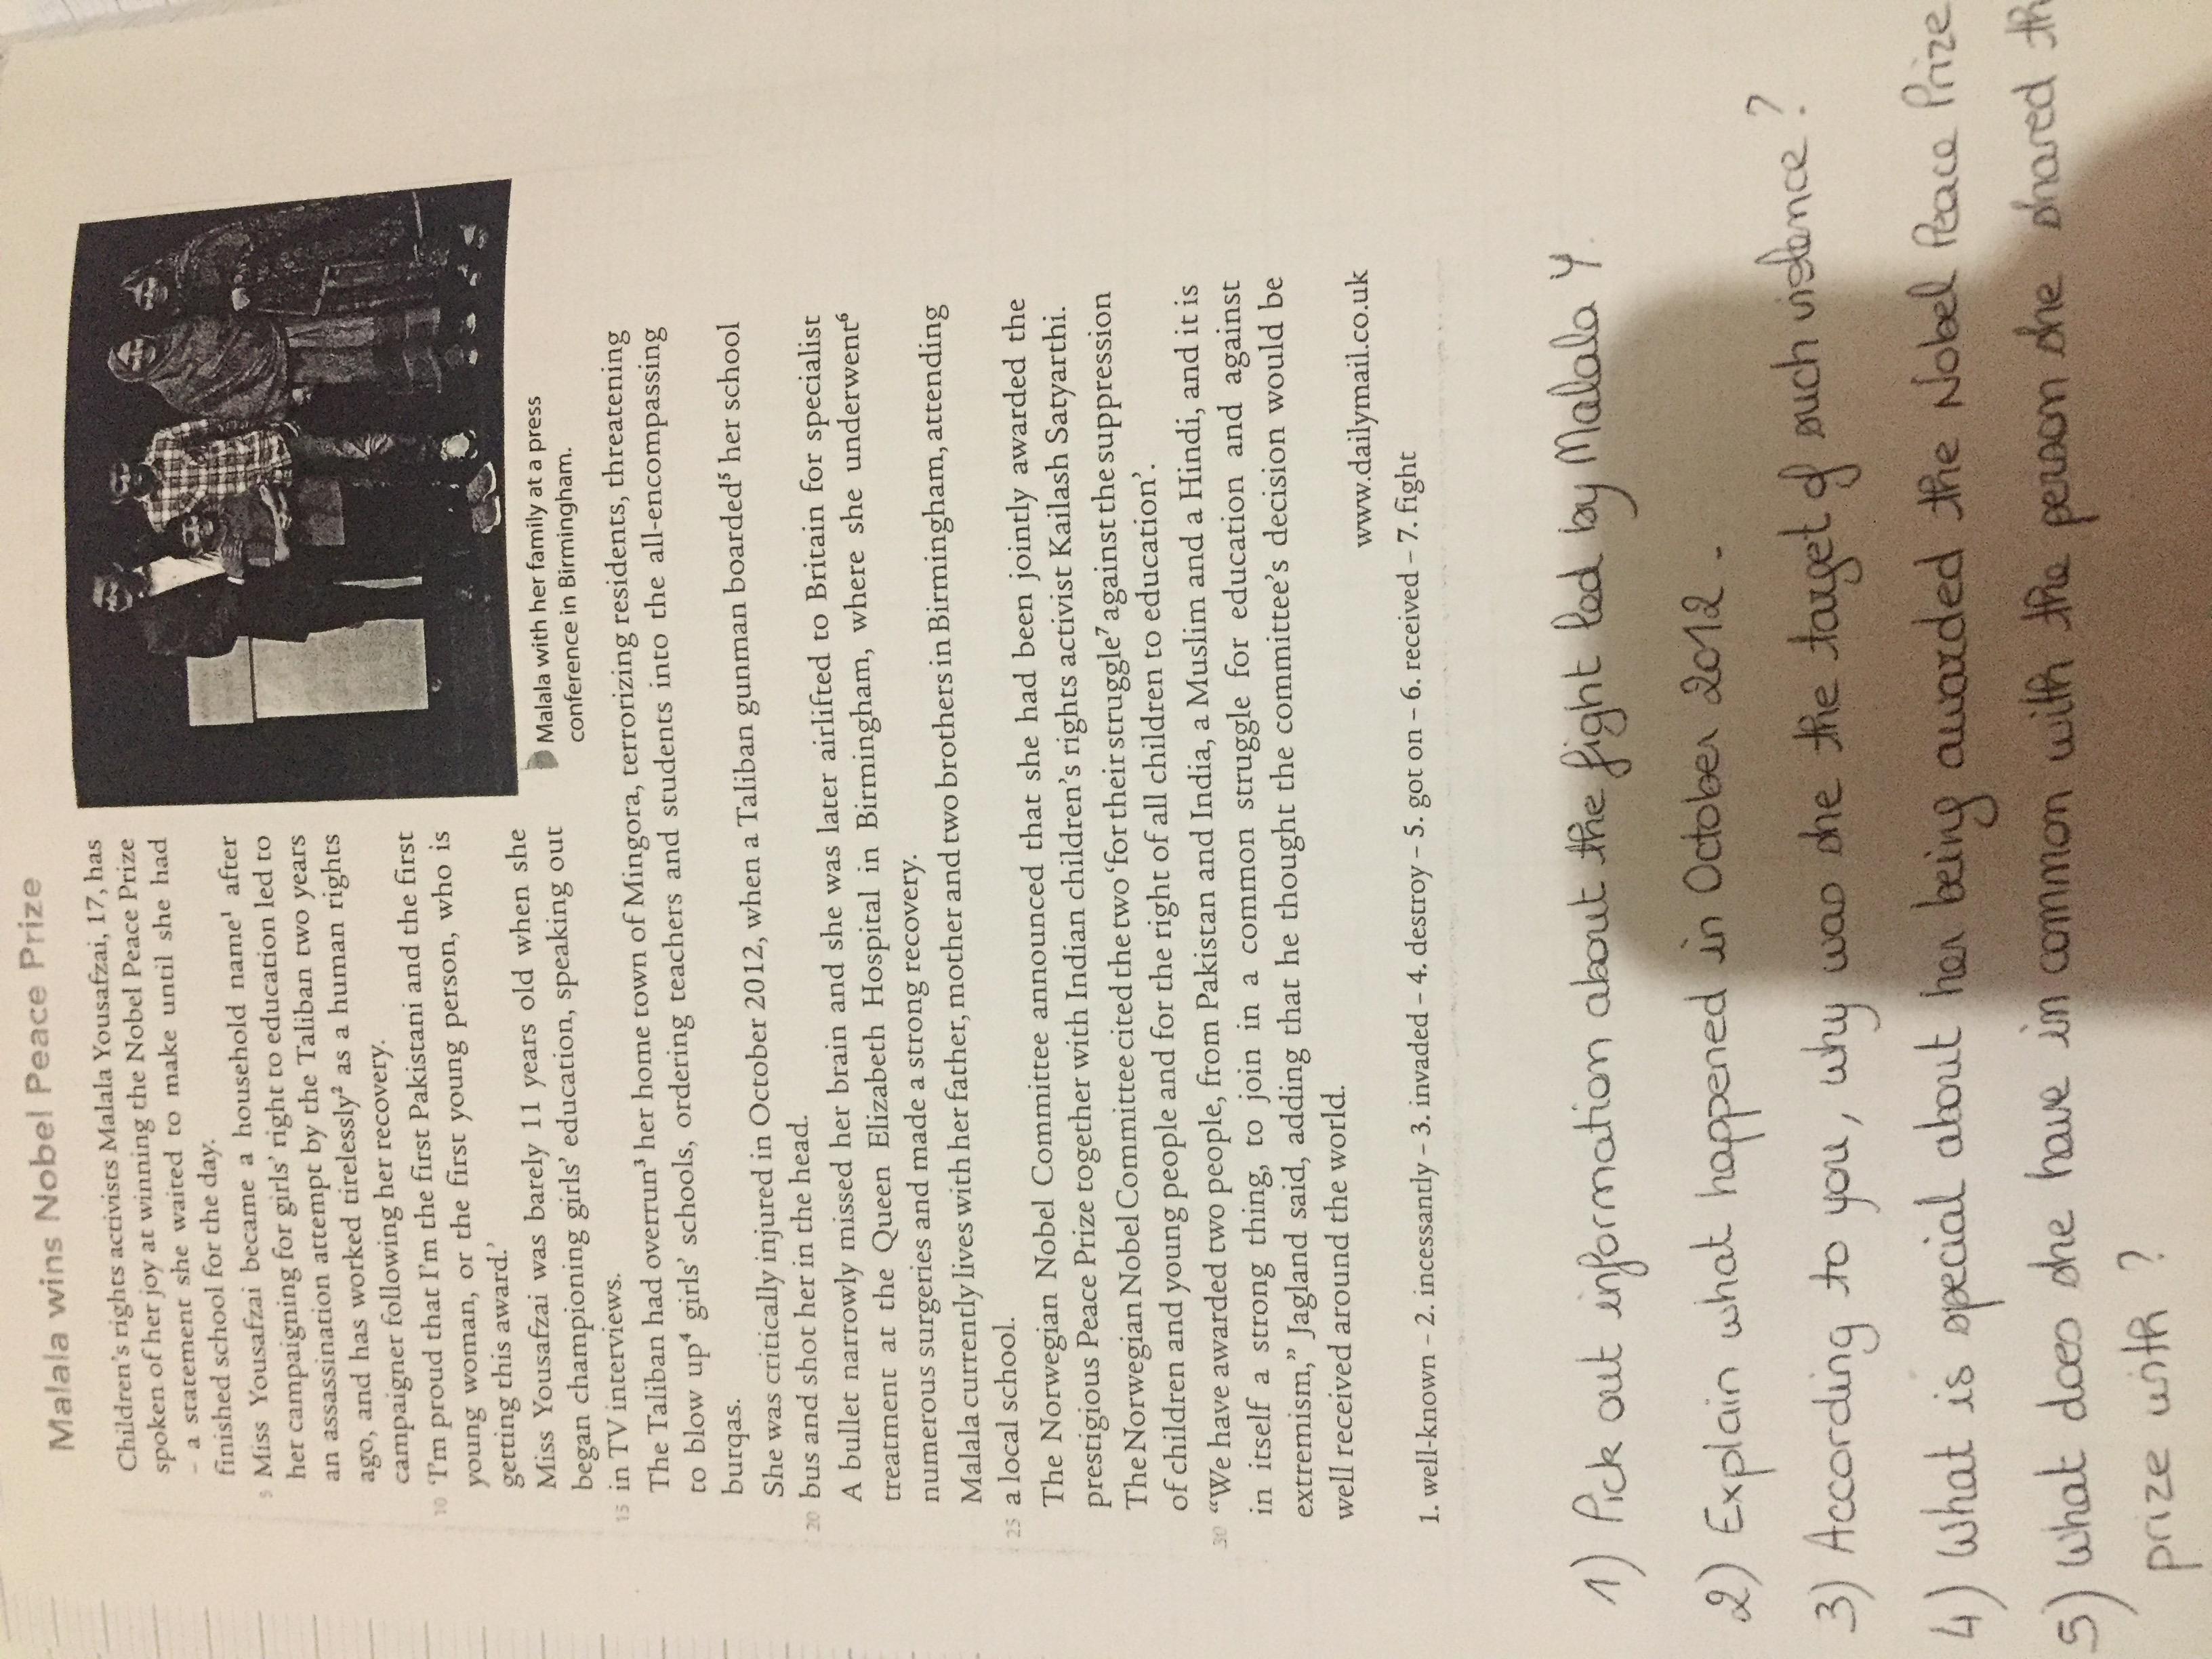 Malala wins Nobel Peace Prize
Children's rights activists Malala Yousafzai, 17, has
spoken of her joy at winning the Nobel Peace Prize
– a statement she waited to make until she had
finished school for the day.
5 Miss Yousafzai became a household name¹ after
her campaigning for girls' right to education led to
an assassination attempt by the Taliban two years
ago, and has worked tirelessly² as a human rights
campaigner following her recovery.
10 'I'm proud that I'm the first Pakistani and the first
young woman, or the first young person, who is
getting this award.'
Miss Yousafzai was barely 11 years old when she
began championing girls' education, speaking out
15 in TV interviews.
Malala with her family at a press
conference in Birmingham.
The Taliban had overrun³ her home town of Mingora, terrorizing residents, threatening
to blow up⁴ girls' schools, ordering teachers and students into the all-encompassing
burqas.
She was critically injured in October 2012, when a Taliban gunman boarded⁵ her school
20 bus and shot her in the head.
A bullet narrowly missed her brain and she was later airlifted to Britain for specialist
treatment at the Queen Elizabeth Hospital in Birmingham, where she underwent⁶
numerous surgeries and made a strong recovery.
Malala currently lives with her father, mother and two brothers in Birmingham, attending
25 a local school.
The Norwegian Nobel Committee announced that she had been jointly awarded the
prestigious Peace Prize together with Indian children's rights activist Kailash Satyarthi.
The Norwegian Nobel Committee cited the two 'for their struggle⁷ against the suppression
of children and young people and for the right of all children to education'.
30 "We have awarded two people, from Pakistan and India, a Muslim and a Hindi, and it is
in itself a strong thing, to join in a common struggle for education and against
extremism," Jagland said, adding that he thought the committee's decision would be
well received around the world.
www.dailymail.co.uk
1. well-known – 2. incessantly – 3. invaded – 4. destroy – 5. got on – 6. received – 7. fight
1) Pick out information about the fight led by Malala Y.
2) Explain what happened in October 2012.
3) According to you, why was she the target of such violence?
4) What is special about her being awarded the Nobel Peace Prize
5) What does she have in common with the person she shared th
prize with ?